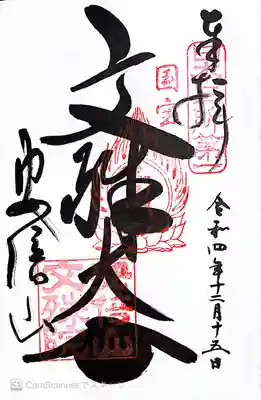 奉拝
国宝
文殊大
安倍山
令和四年十二月十五日
CamScannerでスキャン